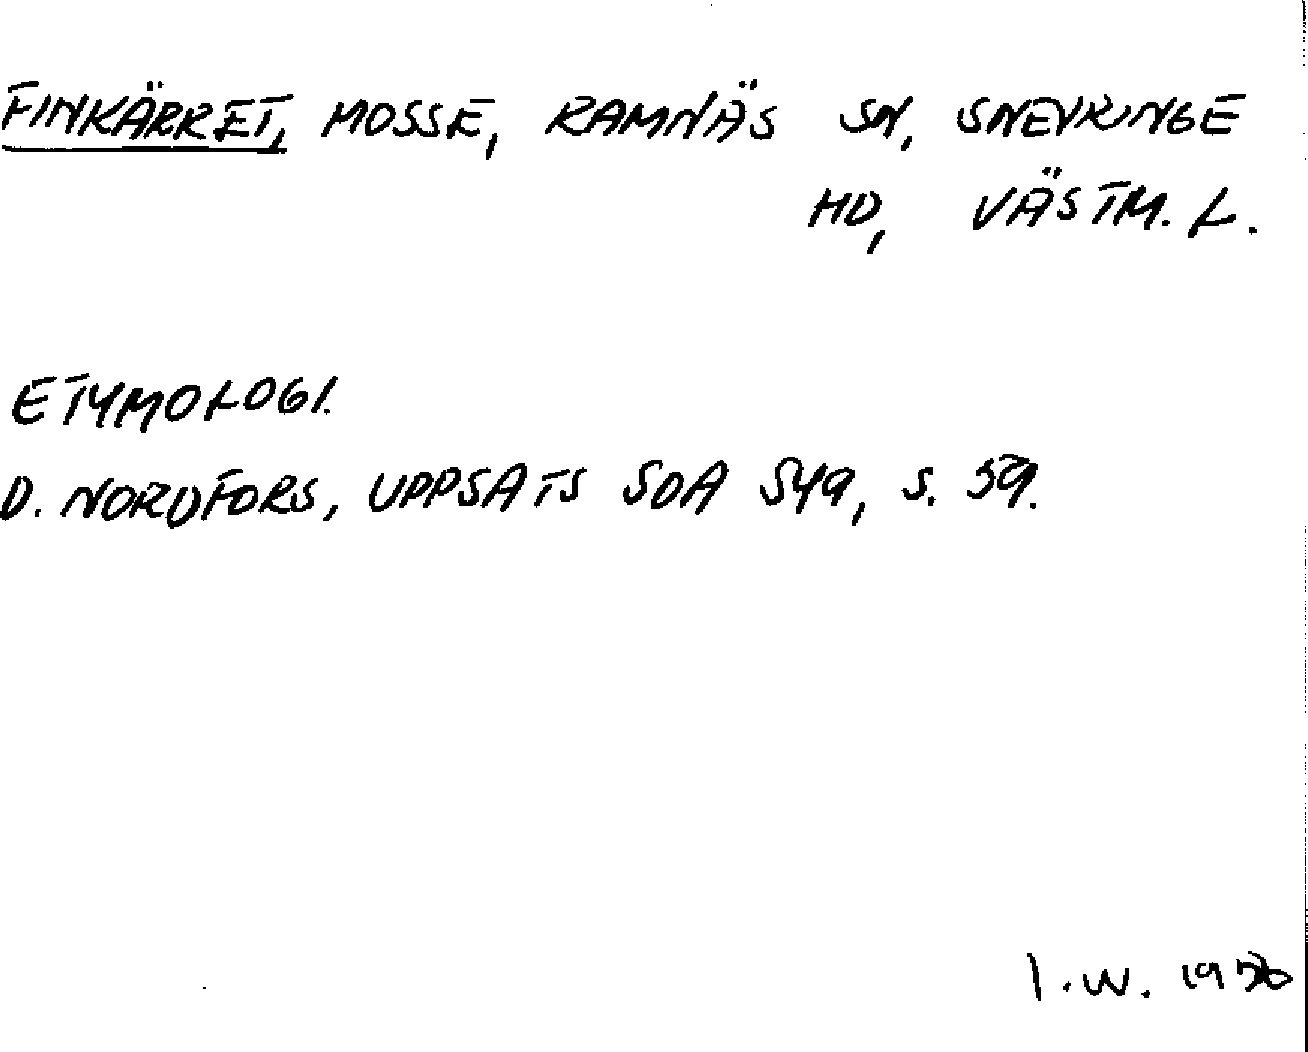 FINKÄRRET, MOSSE, RAMNÄS SN, SNEVRINGE
HD, VÄSTM. L.
ETYMOLOGI.
D. NORDFORS, UPPSATS SOA 549, S. 59.
I.W.